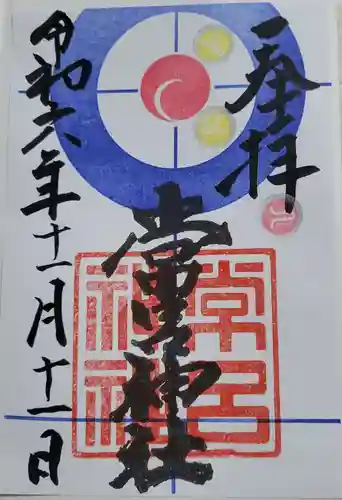 奉拝
常呂神社
令和六年十一月十一日
常呂
神社